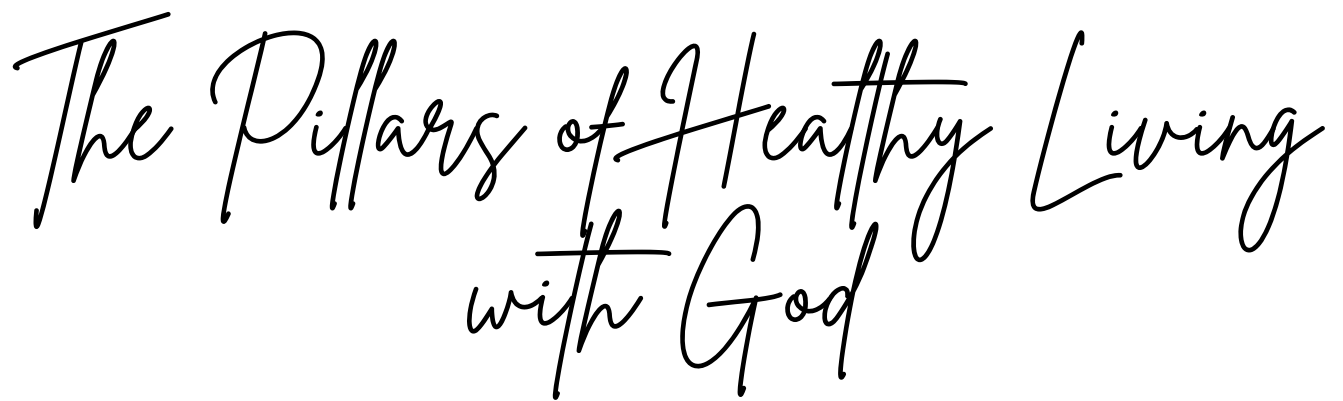 The Pillars of Healthy Living
with God